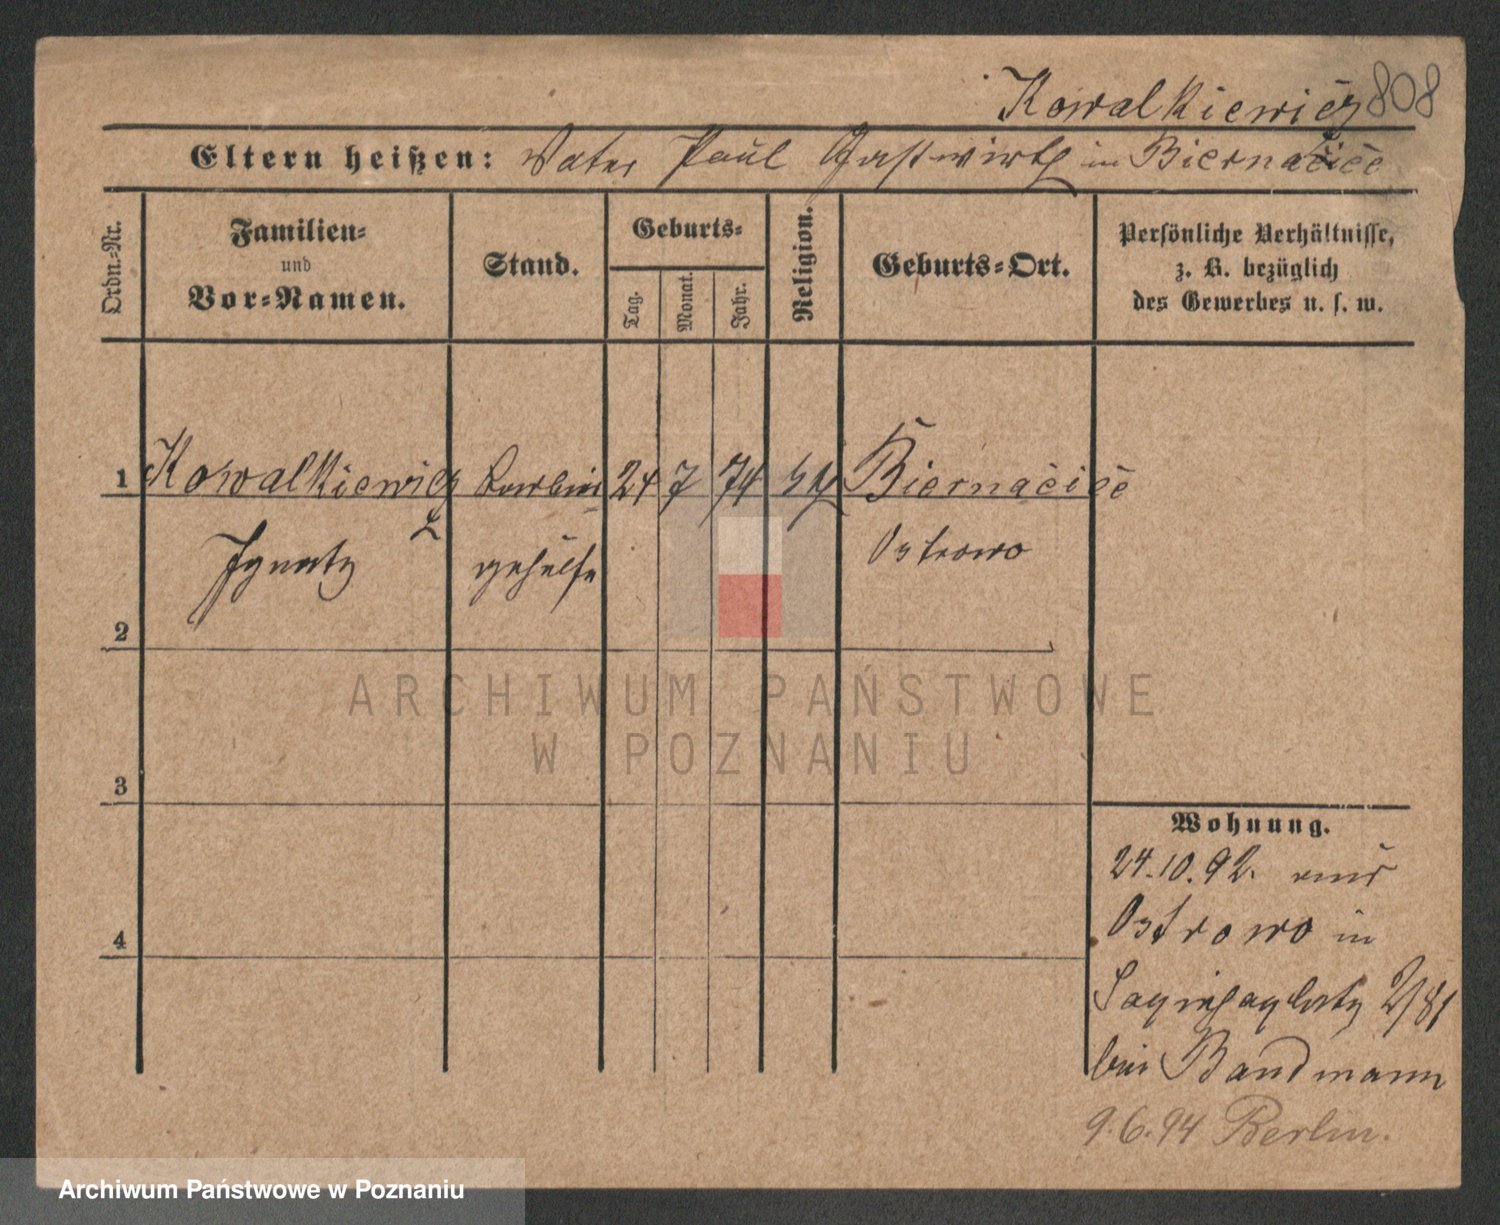 Kowalkiewicz 808
Eltern heißen: Vater Paul Gastwirth in Biernacice
Ordn.-Nr.
Familien-
und
Vor-Namen.
Stand.
Geburts-
Tag.
Monat.
Jahr.
Religion.
Geburts-Ort.
Persönliche Verhältnisse,
z. B. bezüglich
des Gewerbes u. s. w.
1 Kowalkiewicz Barbier 24 7 74 kth Biernacice
Ignatz gehülfe Ostrowo
2
3
4
Wohnung.
24.10.92. aus
Ostrowo in
Sapiehaplatz 2/81
bei Bandmann
9.6.94 Berlin.
ARCHIWUM PAŃSTWOWE
W POZNANIU
Archiwum Państwowe w Poznaniu